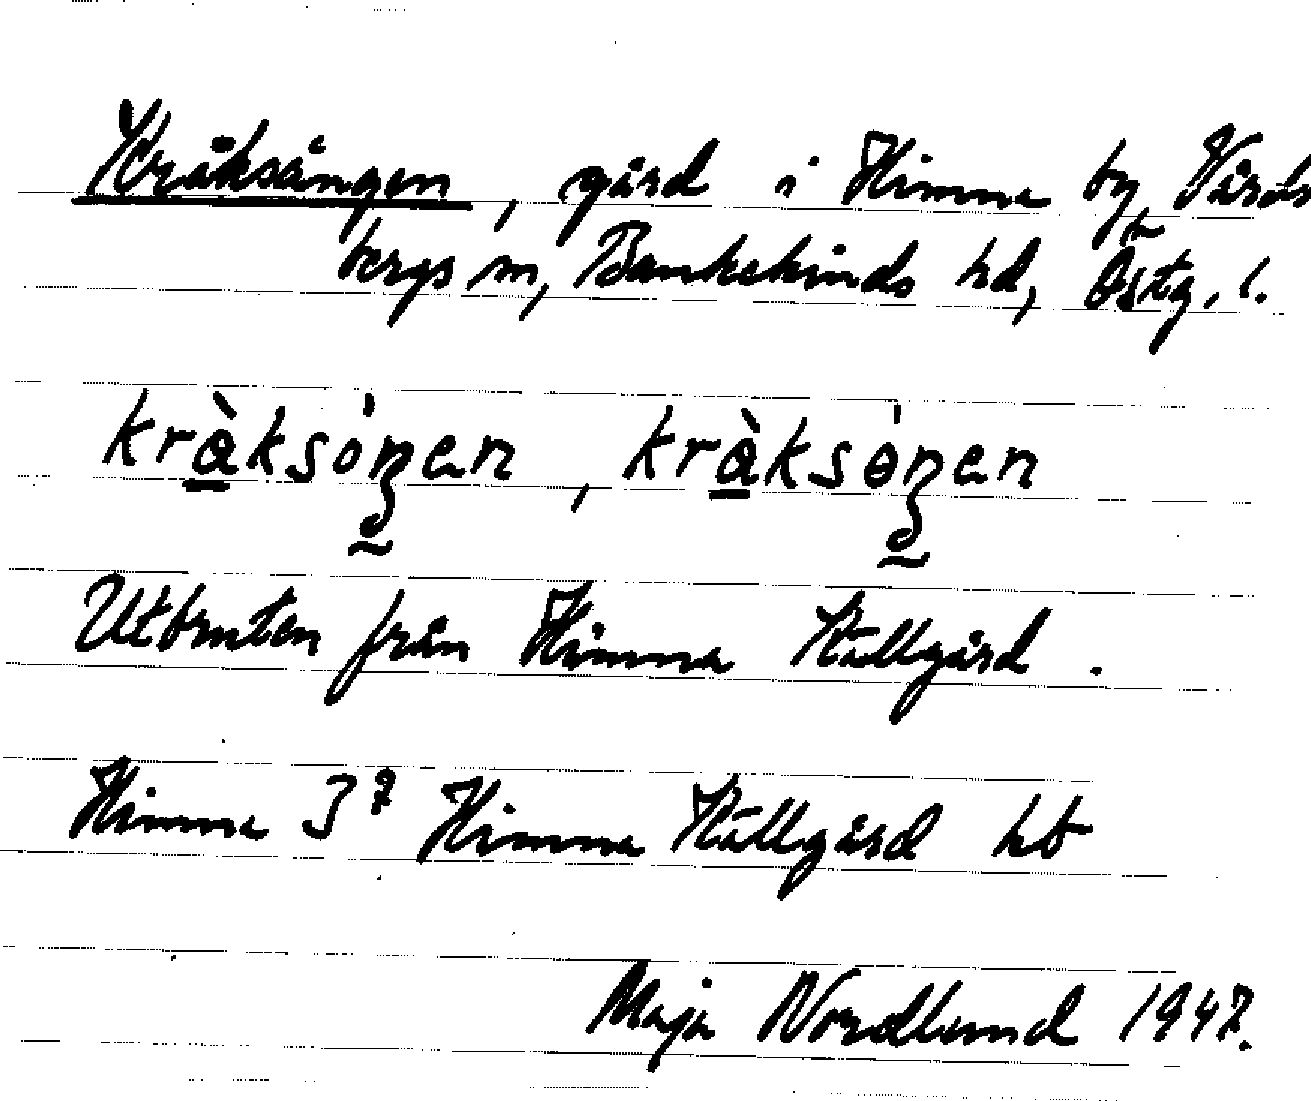 Kråksången, gård i Himna by Vårds
bergs sn, Bankekinds hd, Östg. l.
kràksóŋen, kràksóŋen
Utbruten från Himna Källgård.
Himna 3² Himna Källgård hb
Maja Nordlund 1947.